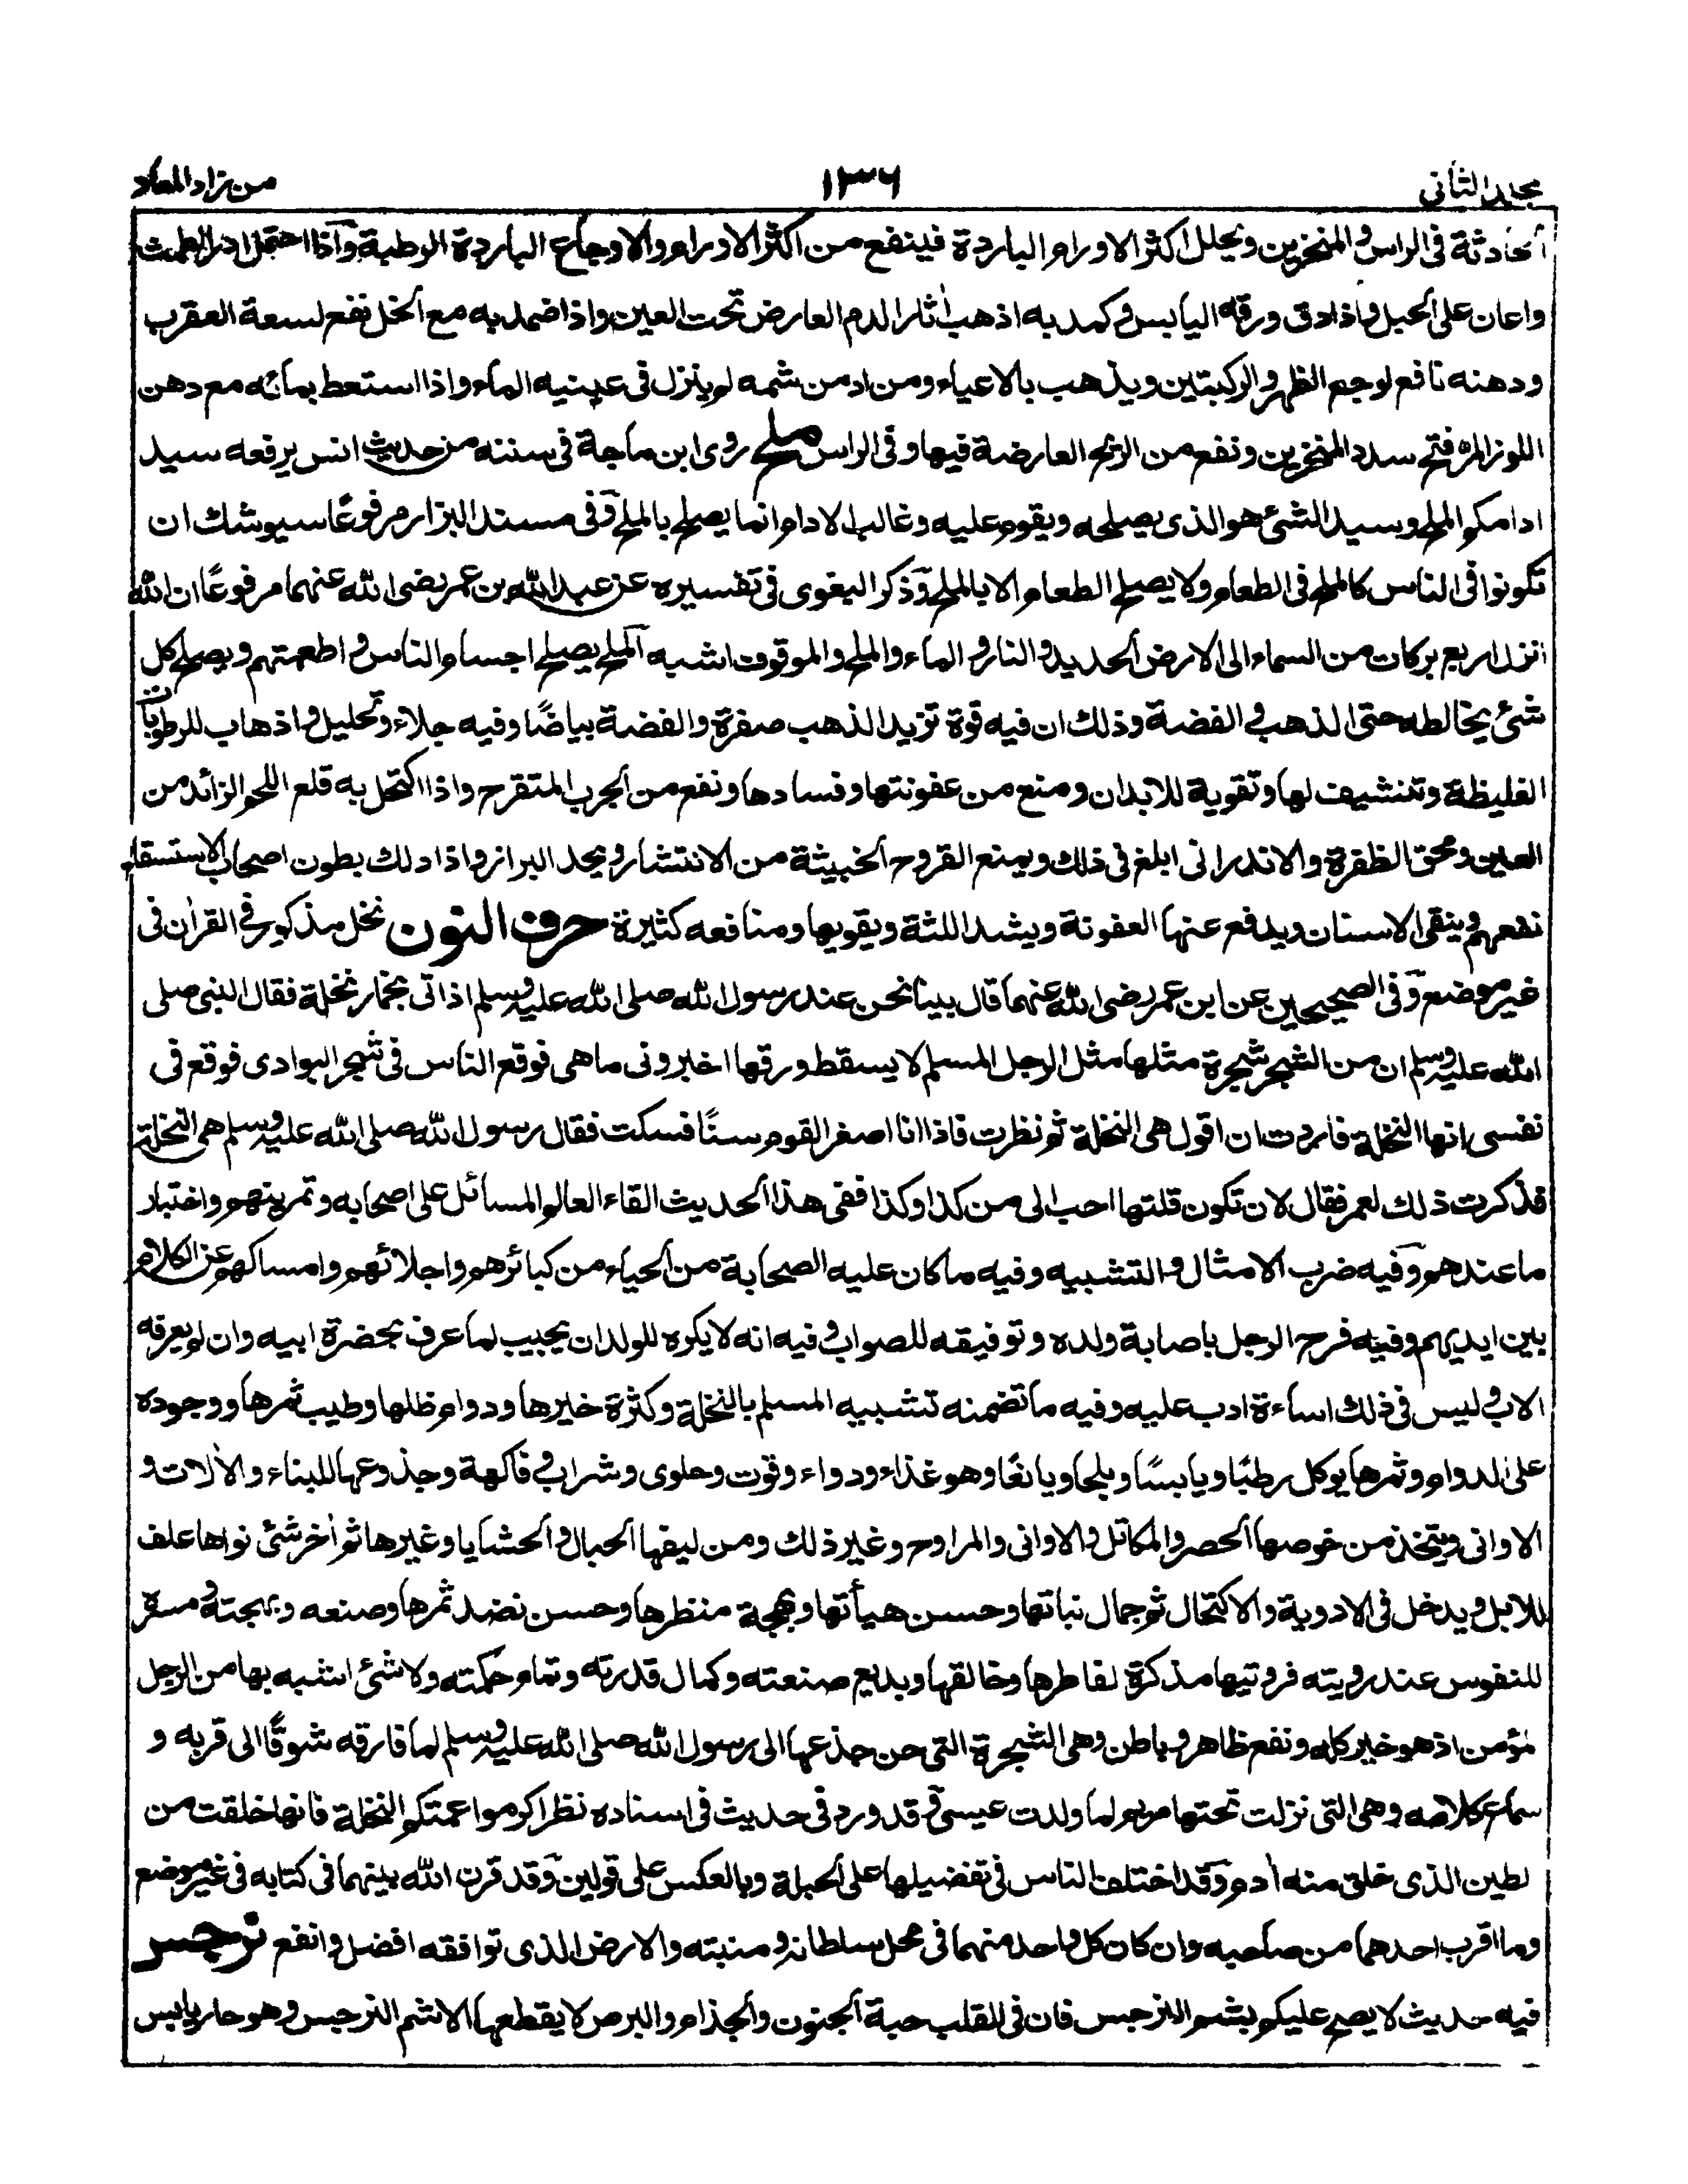 مجلد الثاني ١٣٦ من زاد المعاد
الحادثة فى الراس والمنخرين ويحلل اكثر الاورام الباردة فينفع من اكثر الاورام والاوجاع الباردة الرطبة واذا احتمل ادر الطمث
واعان على الحبل واذا دق ورقه اليابس وكمد به اذهب اٰثار الدم العارض تحت العين واذا ضمد به مع الخل نفع لسعة العقرب
ودهنه نافع لوجع الظهر والركبتين ويذهب بالاعياء ومن ادمن شمه لم ينزل فى عينيه الماء واذا استعط بمائه مع دهن
اللوز المر فتح سدد المنخرين ونفع من الريح العارضة فيها وفى الراس ملح روى ابن ماجة فى سننه من حديث انس يرفعه سيد
ادامكم الملح وسيد الشئ هو الذى يصلحه ويقوم عليه وغالب الادام انما يصلح بالملح وفى مسند البزار مرفوعًا سيوشك ان
تكونوا فى الناس كالملح فى الطعام ولا يصلح الطعام الا بالملح وذكر البغوى فى تفسيره عن عبد الله بن عمر رضى الله عنهما مرفوعًا ان الله
انزل اربع بركات من السماء الى الارض الحديد والنار والماء والملح والموقوف اشبه الملح يصلح اجسام الناس واطعمتهم ويصلح كل
شئ يخالطه حتى الذهب والفضة وذلك ان فيه قوة تزيد الذهب صفرة والفضة بياضًا وفيه جلاء وتحليل واذهاب للرطوبات
الغليظة وتنشيف لها وتقوية للابدان ومنع من عفونتها وفسادها ونفع من الجرب المتقرح واذا اكتحل به قلع اللحم الزائد من
العين ومحق الظفرة والاندرانى ابلغ فى ذلك ويمنع القروح الخبيثة من الانتشار ويحد البراز واذا دلك بطون اصحاب الاستسقاء
نفعهم وينقى الاسنان ويدفع عنها العفونة ويشد اللثة ويقويها ومنافعه كثيرة حرف النون نخل مذكور فى القراٰن فى
غير موضع وفى الصحيحين عن ابن عمر رضى الله عنهما قال بينا نحن عند رسول الله صلى الله عليه وسلم اذ اتى بجمار نخلة فقال النبى صلى
الله عليه وسلم ان من الشجر شجرة مثلها مثل الرجل المسلم لا يسقط ورقها اخبرونى ما هى فوقع الناس فى شجر البوادى فوقع فى
نفسى انها النخلة فاردت ان اقول هى النخلة ثم نظرت فاذا انا اصغر القوم سنًا فسكت فقال رسول الله صلى الله عليه وسلم هى النخلة
فذكرت ذلك لعمر فقال لان تكون قلتها احب الى من كذا وكذا ففى هذا الحديث القاء العالم المسائل على اصحابه وتمرينهم واختبار
ما عندهم وفيه ضرب الامثال والتشبيه وفيه ما كان عليه الصحابة من الحياء من كبائرهم واجلائهم وامساكهم عن الكلام
بين ايديهم وفيه فرح الرجل باصابة ولده وتوفيقه للصواب وفيه انه لا يكره للولد ان يجيب لما عرف بحضرة ابيه وان لم يعرفه
الاب وليس فى ذلك اساءة ادب عليه وفيه ما تضمنه تشبيه المسلم بالنخلة وكثرة خيرها ودوام ظلها وطيب ثمرها ووجوده
على الدوام وثمرها يوكل رطبًا ويابسًا وبلحا ويانعًا وهو غذاء ودواء وقوت وحلوى وشراب وفاكهة وجذوعها للبناء والاٰلات و
الاوانى ويتخذ من خوصها الحصر والمكاتل والاوانى والمراوح وغير ذلك ومن ليفها الحبال والحشايا وغيرها ثم اٰخر شئ نواها علف
للابل ويدخل فى الادوية والاكتحال ثم جمال نباتها وحسن هيأتها وبهجة منظرها وحسن نضد ثمرها وصنعه وبهجته ومسرة
للنفوس عند رويته فرويتها مذكرة لفاطرها وخالقها وبديع صنعته وكمال قدرته وتمام حكمته ولا شئ اشبه بها من الرجل
مؤمن اذ هو خير كله ونفع ظاهر وباطن وهى الشجرة التى حن جذعها الى رسول الله صلى الله عليه وسلم لما فارقه شوقًا الى قربه و
سماع كلامه وهى التى نزلت تحتها مريم لما ولدت عيسى وقد ورد فى حديث فى اسناده نظر اكرموا عمتكم النخلة فانها خلقت من
لطين الذى خلق منه اٰدم وقد اختلف الناس فى تفضيلها على الحبلة وبالعكس على قولين وقد قرن الله بينهما فى كتابه فى غير موضع
وما اقرب احدهما من صاحبه وان كان كل واحد منهما فى محل سلطانه ومنبته والارض الذى توافقه افضل وانفع نرجس
فيه حديث لا يصح عليكم بشم النرجس فان فى القلب حبة الجنون والجذام والبرص لا يقطعها الا شم النرجس وهو حار يابس